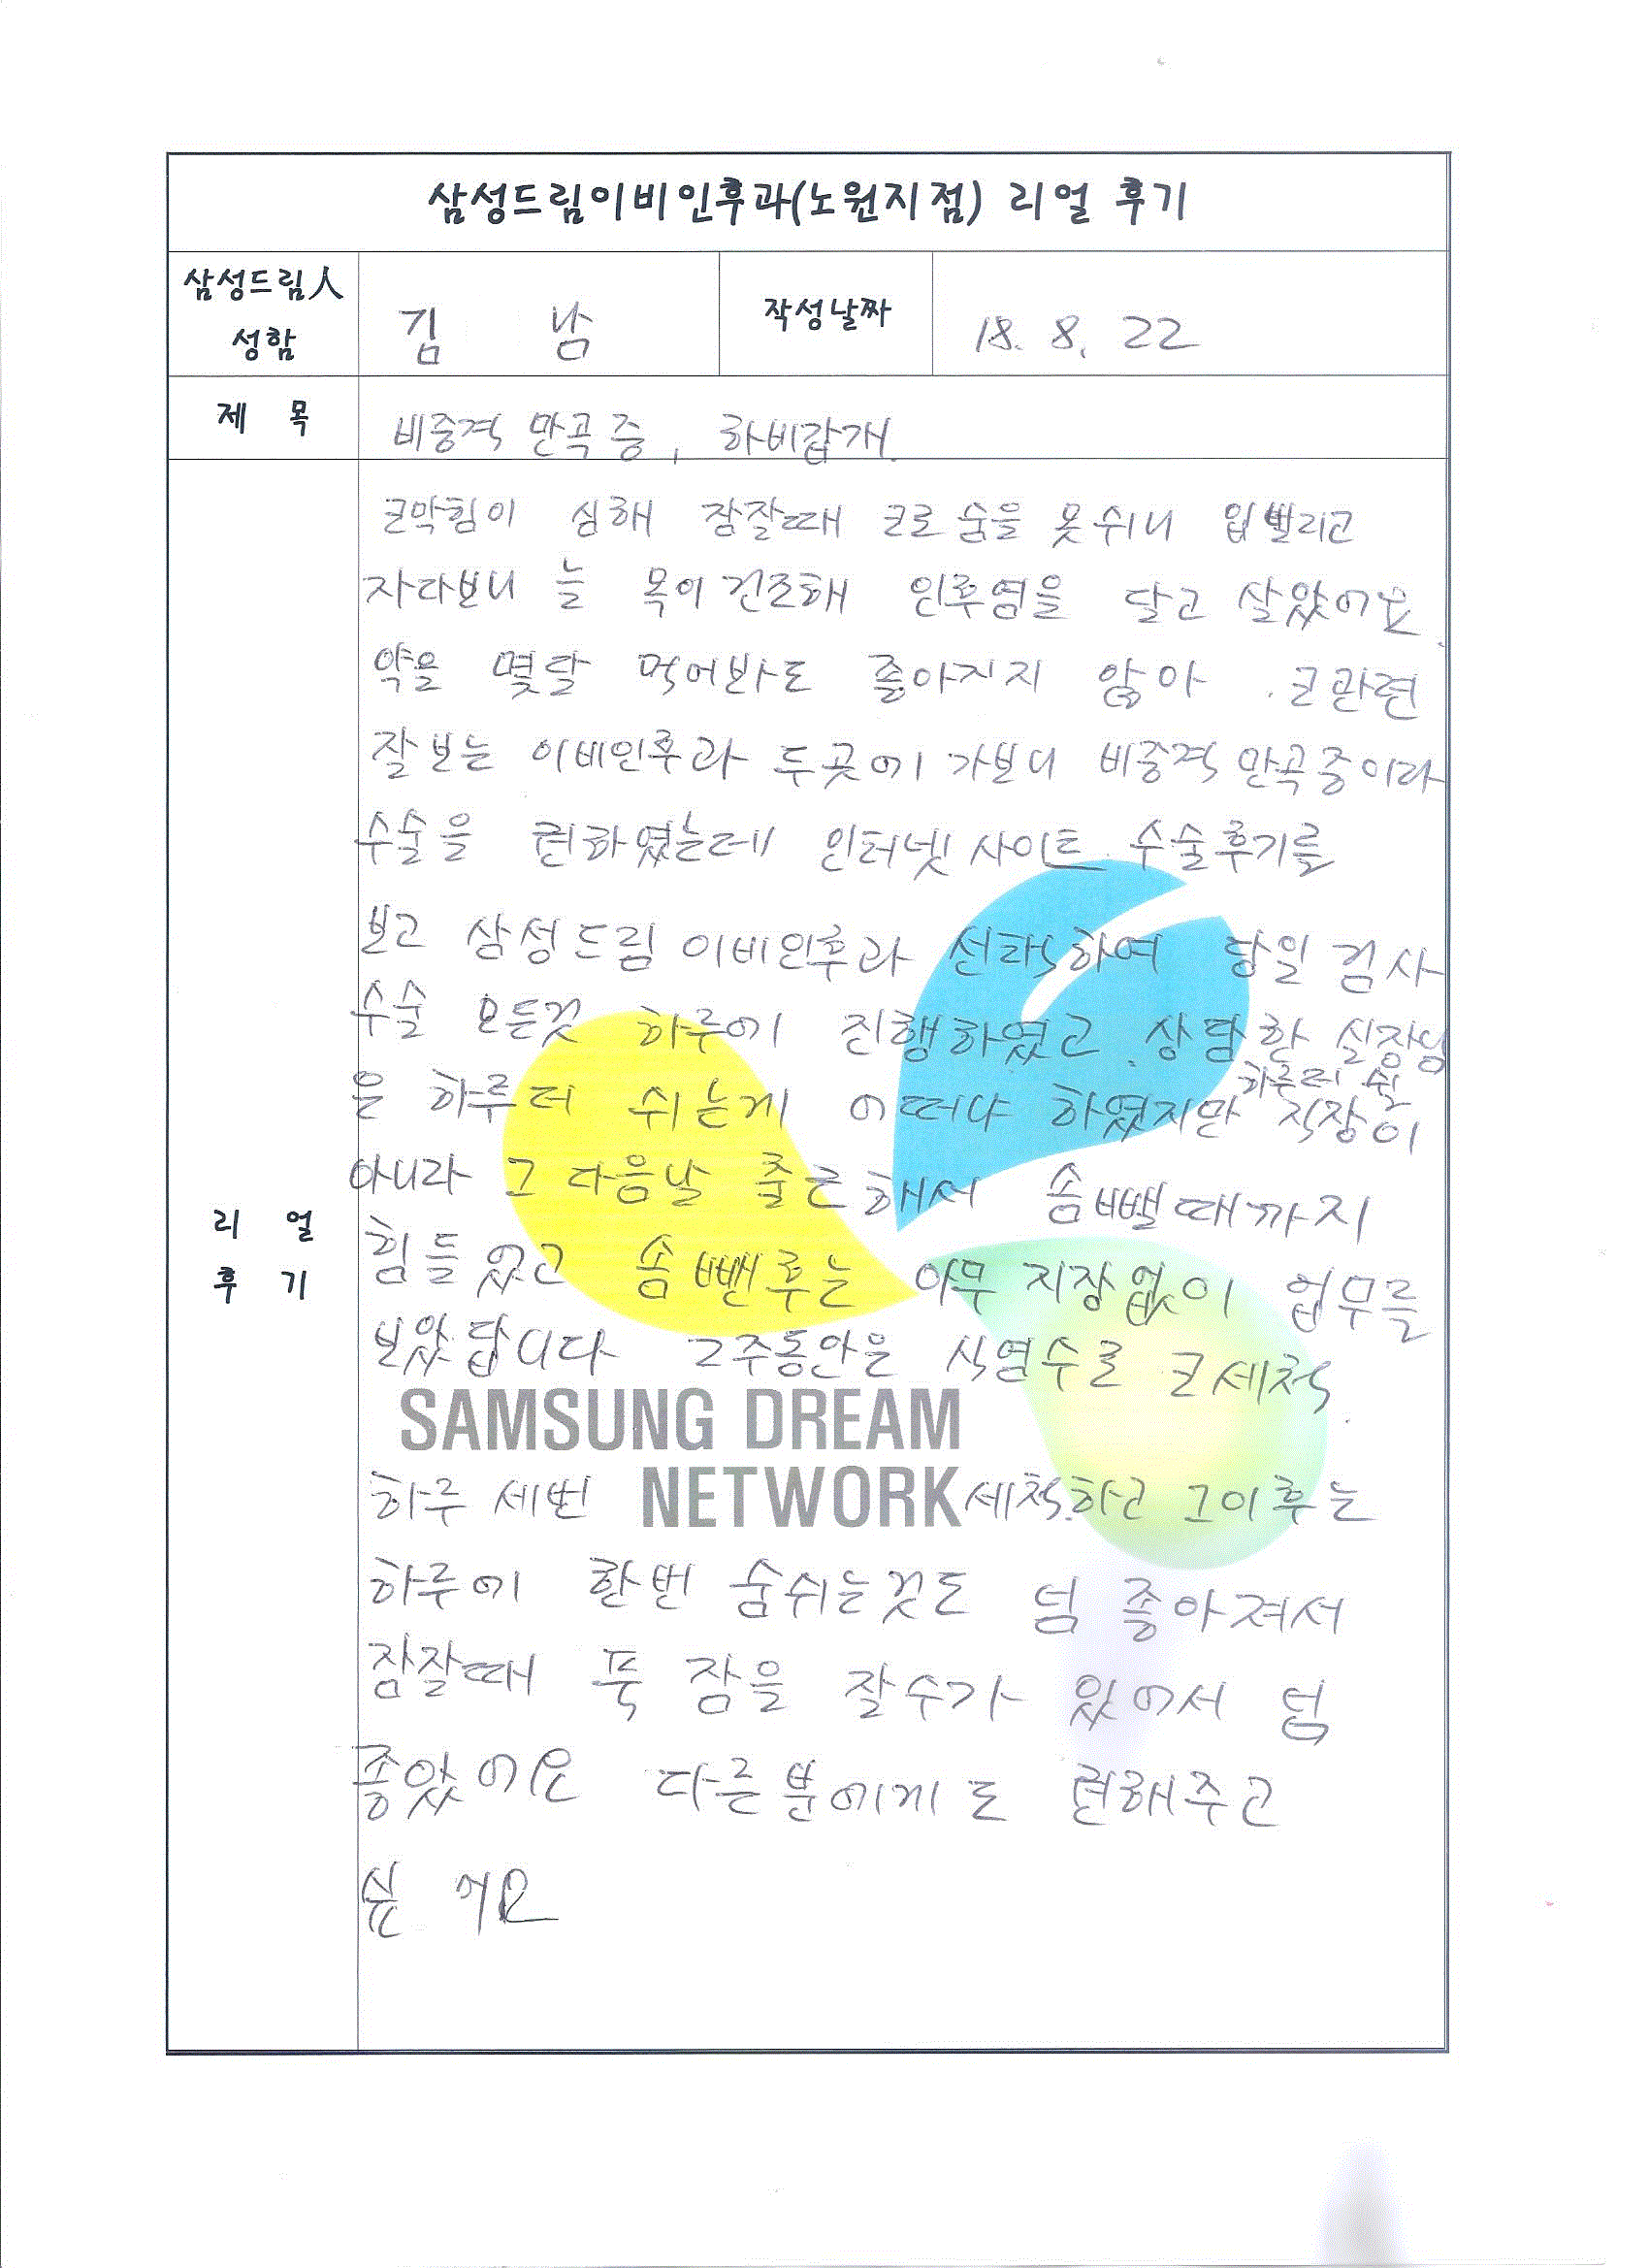 삼성드림이비인후과(노원지점) 리얼 후기
삼성드림人 성함
김 남
작성날짜
18. 8. 22
제 목
비중격 만곡증, 하비갑개
리 얼 후 기
코막힘이 심해 잠잘때 코로 숨을 못쉬니 입벌리고
자다보니 늘 목이 건조해 인후염을 달고 살았어요.
약을 몇달 먹어봐도 좋아지지 않아 . 코관련
잘보는 이비인후과 두곳에 가보니 비중격 만곡증이라
수술을 권하였는데 인터넷 사이트 수술후기를
보고 삼성드림 이비인후과 선택하여 당일 검사
수술 모든것 하루에 진행하였고 상담한 실장님
은 하루더 쉬는게 어떠냐 하였지만 하루더 쉴 직장이
아니라 그 다음날 출근해서 솜뺄때까지
힘들었고 솜뺀후는 아무 지장없이 업무를
보았답니다 2주동안은 식염수로 코세척.
SAMSUNG DREAM
NETWORK
하루 세번 세척하고 그이후는
하루에 한번 숨쉬는것도 넘 좋아져서
잠잘때 푹 잠을 잘수가 있어서 넘
좋았어요 다른분에게도 권해주고
싶어요